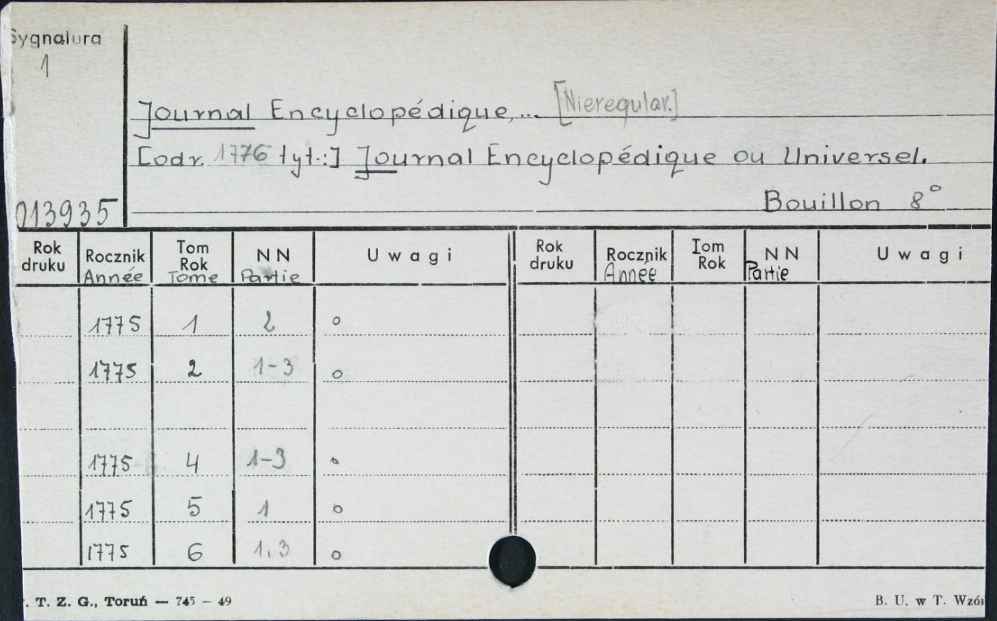 Sygnatura
1
Journal Encyclopédique,... [Nieregular.]
[odr. 1776 tyt.:] Journal Encyclopédique ou Universel.
013935 Bouillon 8°
Rok druku Rocznik Année Tom Rok Tome NN Partie Uwagi Rok druku Rocznik Année Tom Rok NN Partie Uwagi
1775 1 2 o
1775 2 1-3 o
1775 4 1-3 o
1775 5 1 o
1775 6 1,3 o
. T. Z. G., Toruń — 745 - 49 B. U. w T. Wzó